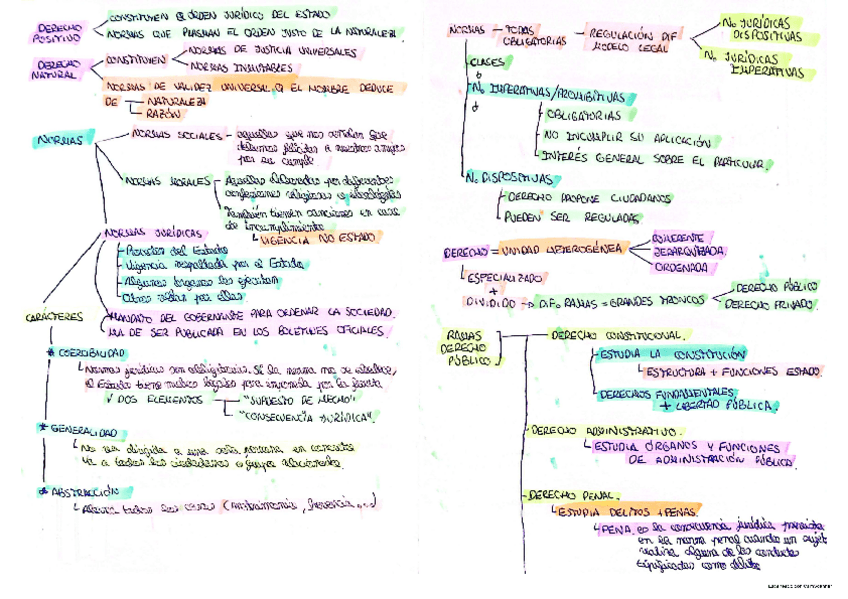 DERECHO POSITIVO
CONSTITUYEN EL ORDEN JURÍDICO DEL ESTADO
NORMAS QUE PLASMAN EL ORDEN JUSTO DE LA NATURALEZA
DERECHO NATURAL
CONSTITUYEN
NORMAS DE JUSTICIA UNIVERSALES
NORMAS INMUTABLES
NORMAS DE VALIDEZ UNIVERSAL Q EL HOMBRE DEDUCE
DE
NATURALEZA
RAZÓN
NORMAS
NORMAS SOCIALES - aquellas que nos señalan que
debemos felicitar a nuestros amigos
por su cumple
NORMAS MORALES - Aquellas elaboradas por diferentes
confesiones religiosas o ideologías
También tienen sanciones en caso
de incumplimiento
VIGENCIA NO ESTADO
NORMAS JURÍDICAS
Proceden del Estado
Vigencia respaldada por el Estado
Algunos órganos las ejecutan
Otros velan por ellas
CARÁCTERES
MANDATO DEL GOBERNANTE PARA ORDENAR LA SOCIEDAD.
HA DE SER PUBLICADA EN LOS BOLETINES OFICIALES.
* COERCIBILIDAD
Normas jurídicas son obligatorias. Si la norma no se obedece,
el Estado tiene medios legales para imponerla por la fuerza
DOS ELEMENTOS
"SUPUESTO DE HECHO"
"CONSECUENCIA JURÍDICA".
* GENERALIDAD
No va dirigida a una sola persona en concreto
va a todos los ciudadanos o grupos
* ABSTRACCIÓN
todos los casos (
NORMAS - TODAS OBLIGATORIAS - REGULACIÓN DIF MODELO LEGAL
N. JURÍDICAS DISPOSITIVAS
N. JURÍDICAS IMPERATIVAS
CLASES
N. IMPERATIVAS/PROHIBITIVAS
OBLIGATORIAS
NO INCUMPLIR SU APLICACIÓN
INTERÉS GENERAL SOBRE EL PARTICULAR.
N. DISPOSITIVAS
DERECHO PROPONE CIUDADANOS
PUEDEN SER REGULADAS
DERECHO = UNIDAD HETEROGÉNEA
COHERENTE
JERARQUIZADA
ORDENADA
ESPECIALIZADO
+
DIVIDIDO → DIF. RAMAS = GRANDES TRONCOS
DERECHO PÚBLICO
DERECHO PRIVADO.
RAMAS DERECHO PÚBLICO
DERECHO CONSTITUCIONAL.
ESTUDIA LA CONSTITUCIÓN
ESTRUCTURA + FUNCIONES ESTADO.
DERECHOS FUNDAMENTALES
+ LIBERTAD PÚBLICA.
DERECHO ADMINISTRATIVO.
ESTUDIA ÓRGANOS Y FUNCIONES
DE ADMINISTRACIÓN PÚBLICA.
DERECHO PENAL.
ESTUDIA DELITOS + PENAS.
PENA es la consecuencia jurídica prevista
en la norma penal cuando un sujeto
realiza alguna de las conductas
tipificadas como delito